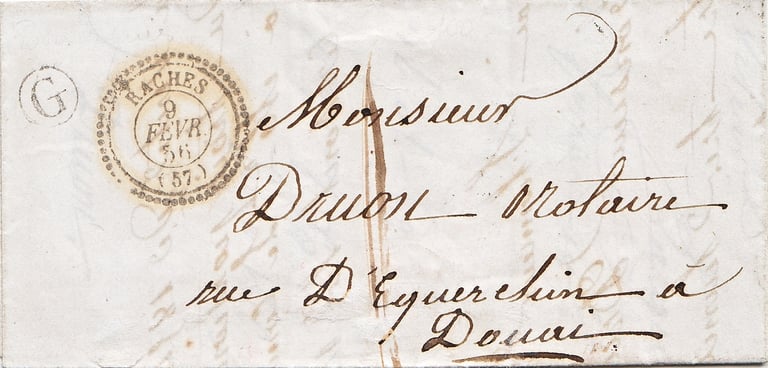 G
RACHES
9
FÉVR.
56
(57)
Monsieur
Druon notaire
rue D'Equerchin à
Douai
1